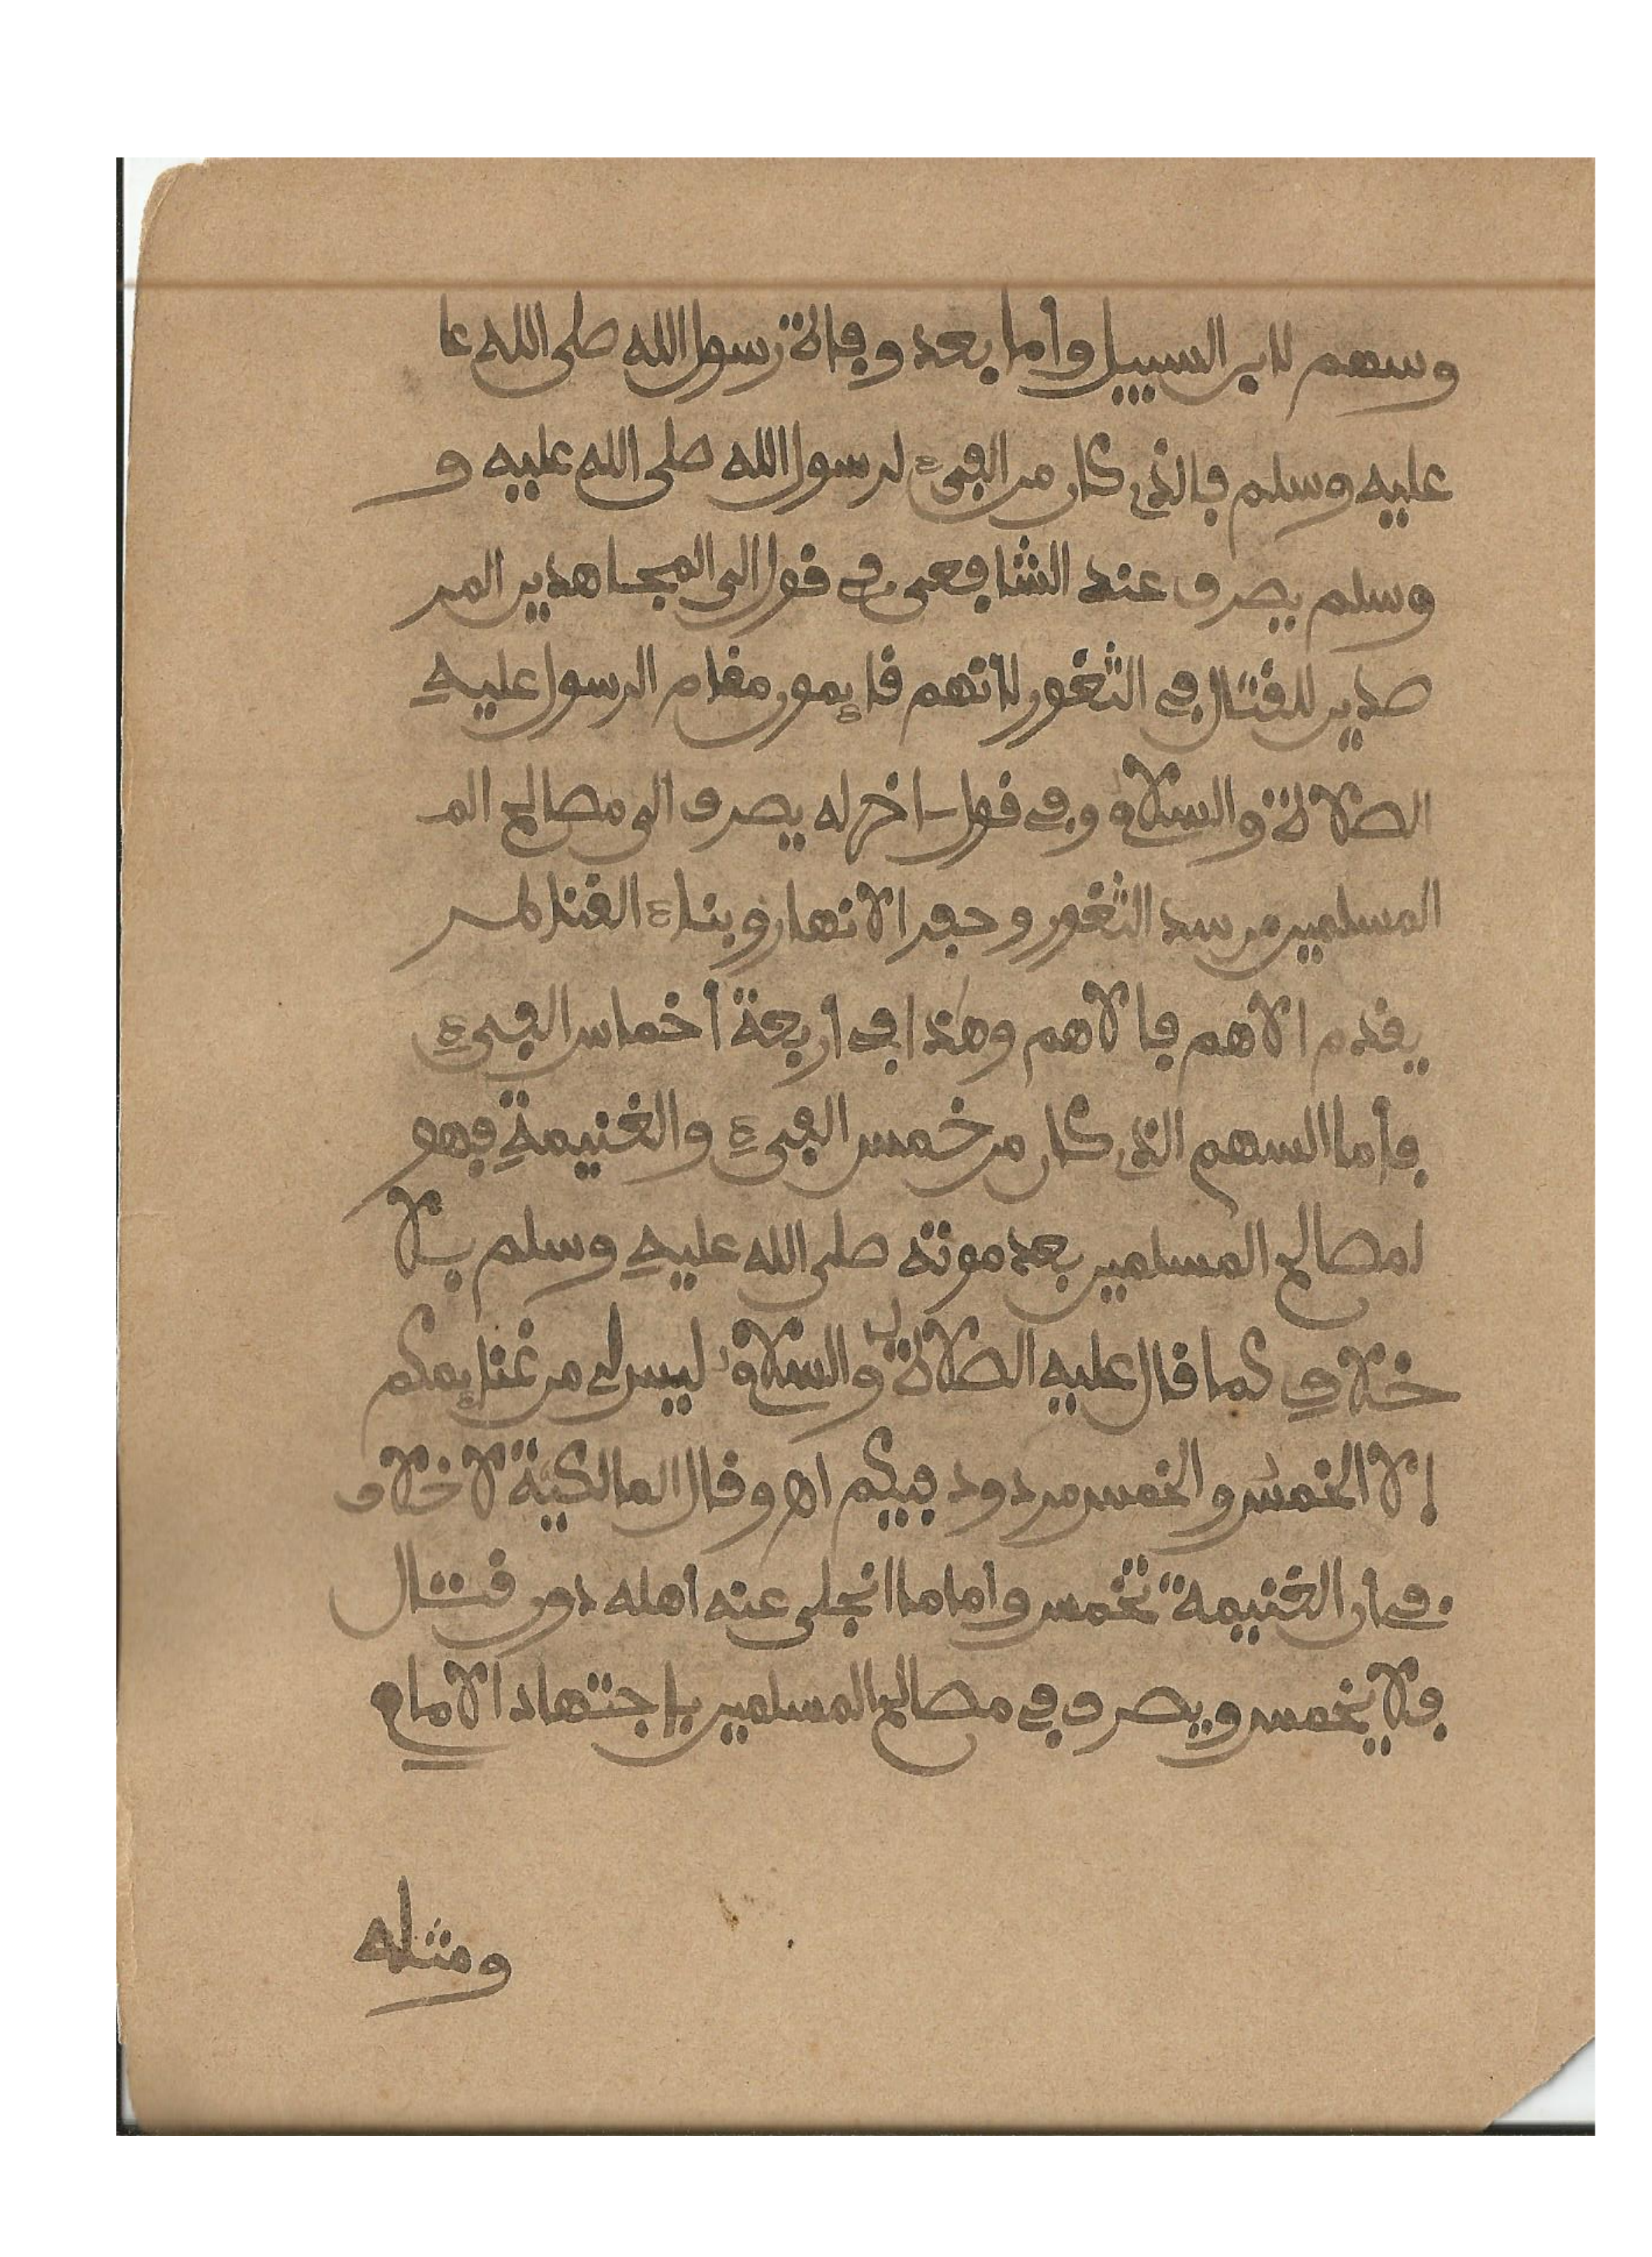 وسهم لابن السبيل وأما بعد وفاة رسول الله صلى الله عا
عليه وسلم فالذى كان من الفىء لرسول الله صلى الله عليه و
وسلم يصرف عند الشافعى فى قول الى المجاهدين المر
صدين للقتال فى الثغور لانهم قايمون مقام الرسول عليه
الصلاة والسلام وفى قول اخر له يصرف الى مصالح الم
المسلمين من سد الثغور وحفر الانهار وبناء القناطر
يقدم الاهم فالاهم وهذا فى أربعة أخماس الفىء
فأما السهم الذى كان من خمس الفىء والغنيمة فهو
لمصالح المسلمين بعد موته صلى الله عليه وسلم بلا
خلاف كما قال عليه الصلاة والسلام ليس لى من غنايمكم
إلا الخمس والخمس مردود فيكم اهـ وقال المالكية لا خلاف
فى ان الغنيمة تخمس واما ما انجلى عنه اهله دون قتال
فلا يخمس ويصرف فى مصالح المسلمين بإجتهاد الامام
ومثله